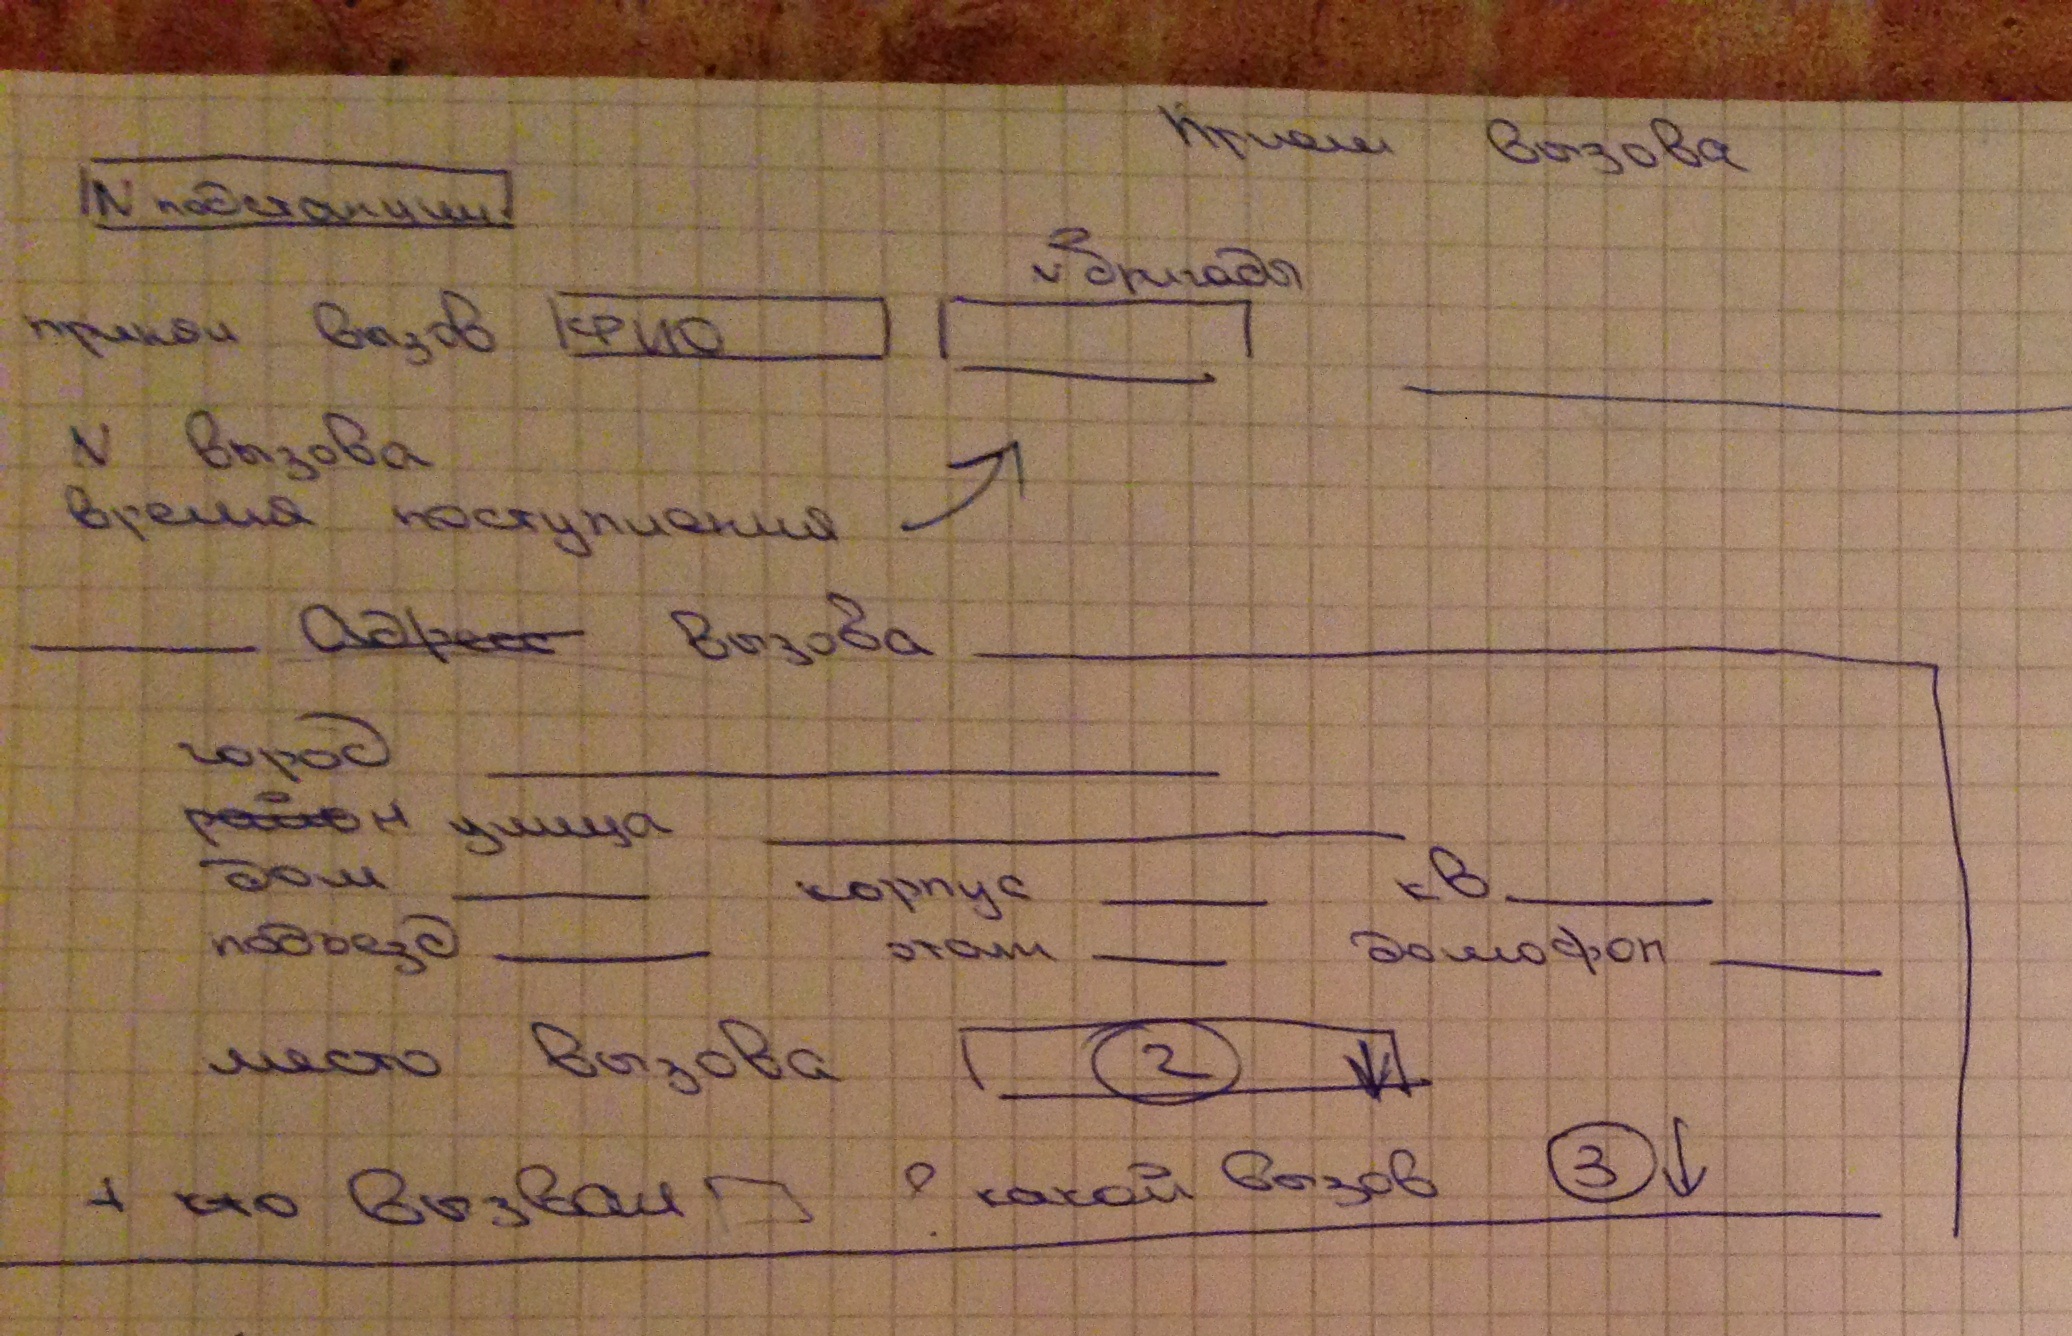 Прием вызова
N подстанции
принял вызов ФИО N бригады
N вызова
время поступления
Адрес вызова
город
район улица
дом корпус кв
подъезд этаж домофон
место вызова 2
кто вызвал какой вызов 3